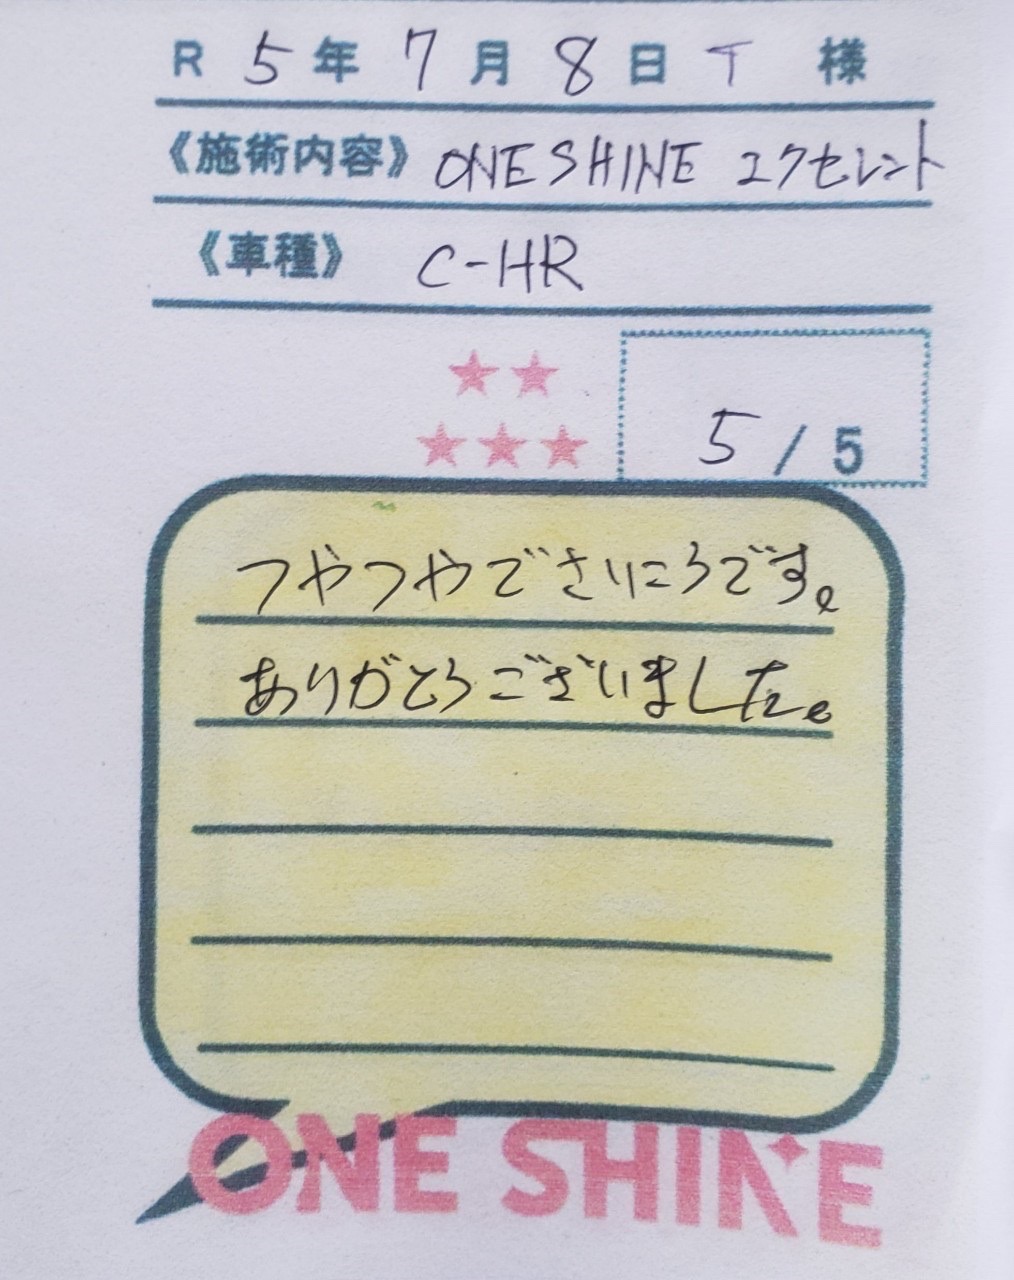 R 5年 7月 8日 T 様
《施術内容》 ONE SHINE エクセレント
《車種》 C-HR
★★
★★★
5 / 5
つやつやでさいこうです。
ありがとうございました。
ONE SHINE